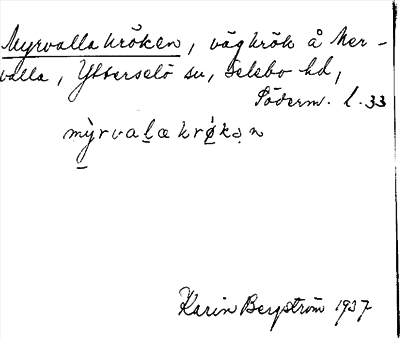 Myrvallakröken, vägkrök å Mer-
valla, Ytterselö sn, Selebo hd,
Söderm. l. 33
mỳrvaḻa krø̀kə̣n
Karin Bergström 1937